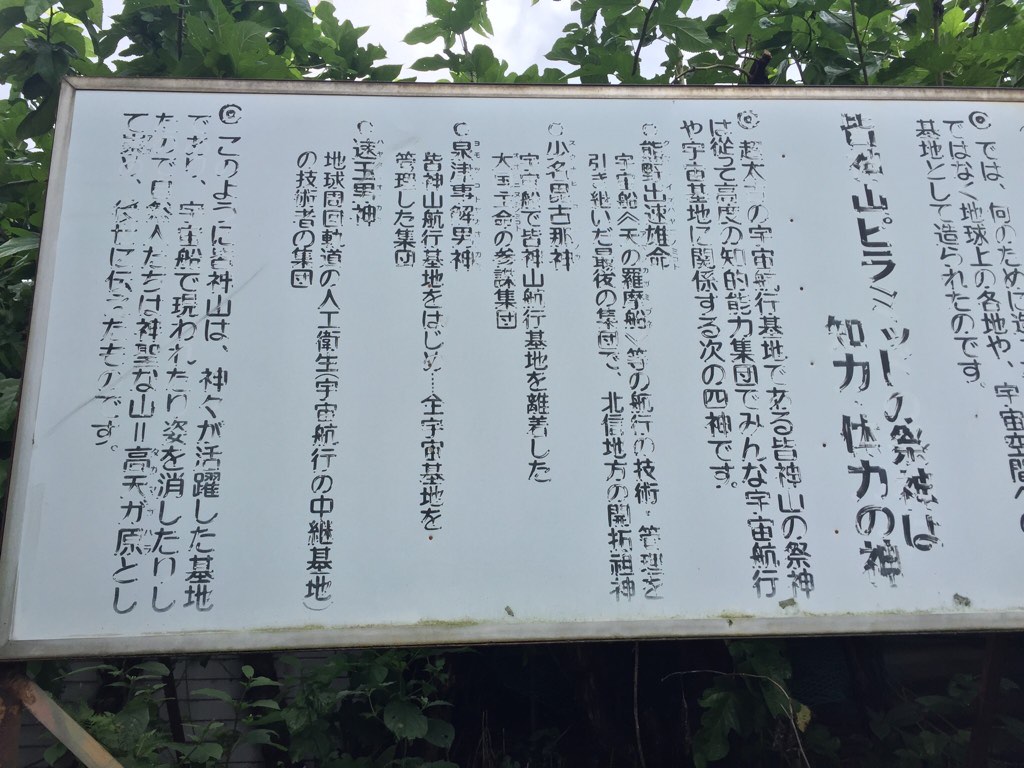 ◎では、何のために造
ではなく地球上の各地や、宇宙空間への
基地として造られたのです。
皆神山ピラミッドの祭神は
知力・体力の神
◎超太古の宇宙航行基地である皆神山の祭神
は従って高度の知的能力集団でみんな宇宙航行
や宇宙基地に関係する次の四神です。
○熊野出速雄命
宇宙船〈天の羅摩船〉等の航行の技術・管理を
引き継いだ最後の集団で、北信地方の開拓祖神
○少名毘古那神
宇宙船で皆神山航行基地を離着した
大国主命の参謀集団
○泉津事解男神
皆神山航行基地をはじめ…全宇宙基地を
管理した集団
○速玉男神
地球周回軌道の人工衛生(宇宙航行の中継基地)
の技術者の集団
◎このように皆神山は、神々が活躍した基地
であり、宇宙船で現われたり姿を消したりし
たので自然人たちは神聖な山＝高天ガ原とし
て崇め、後世に伝ったものです。